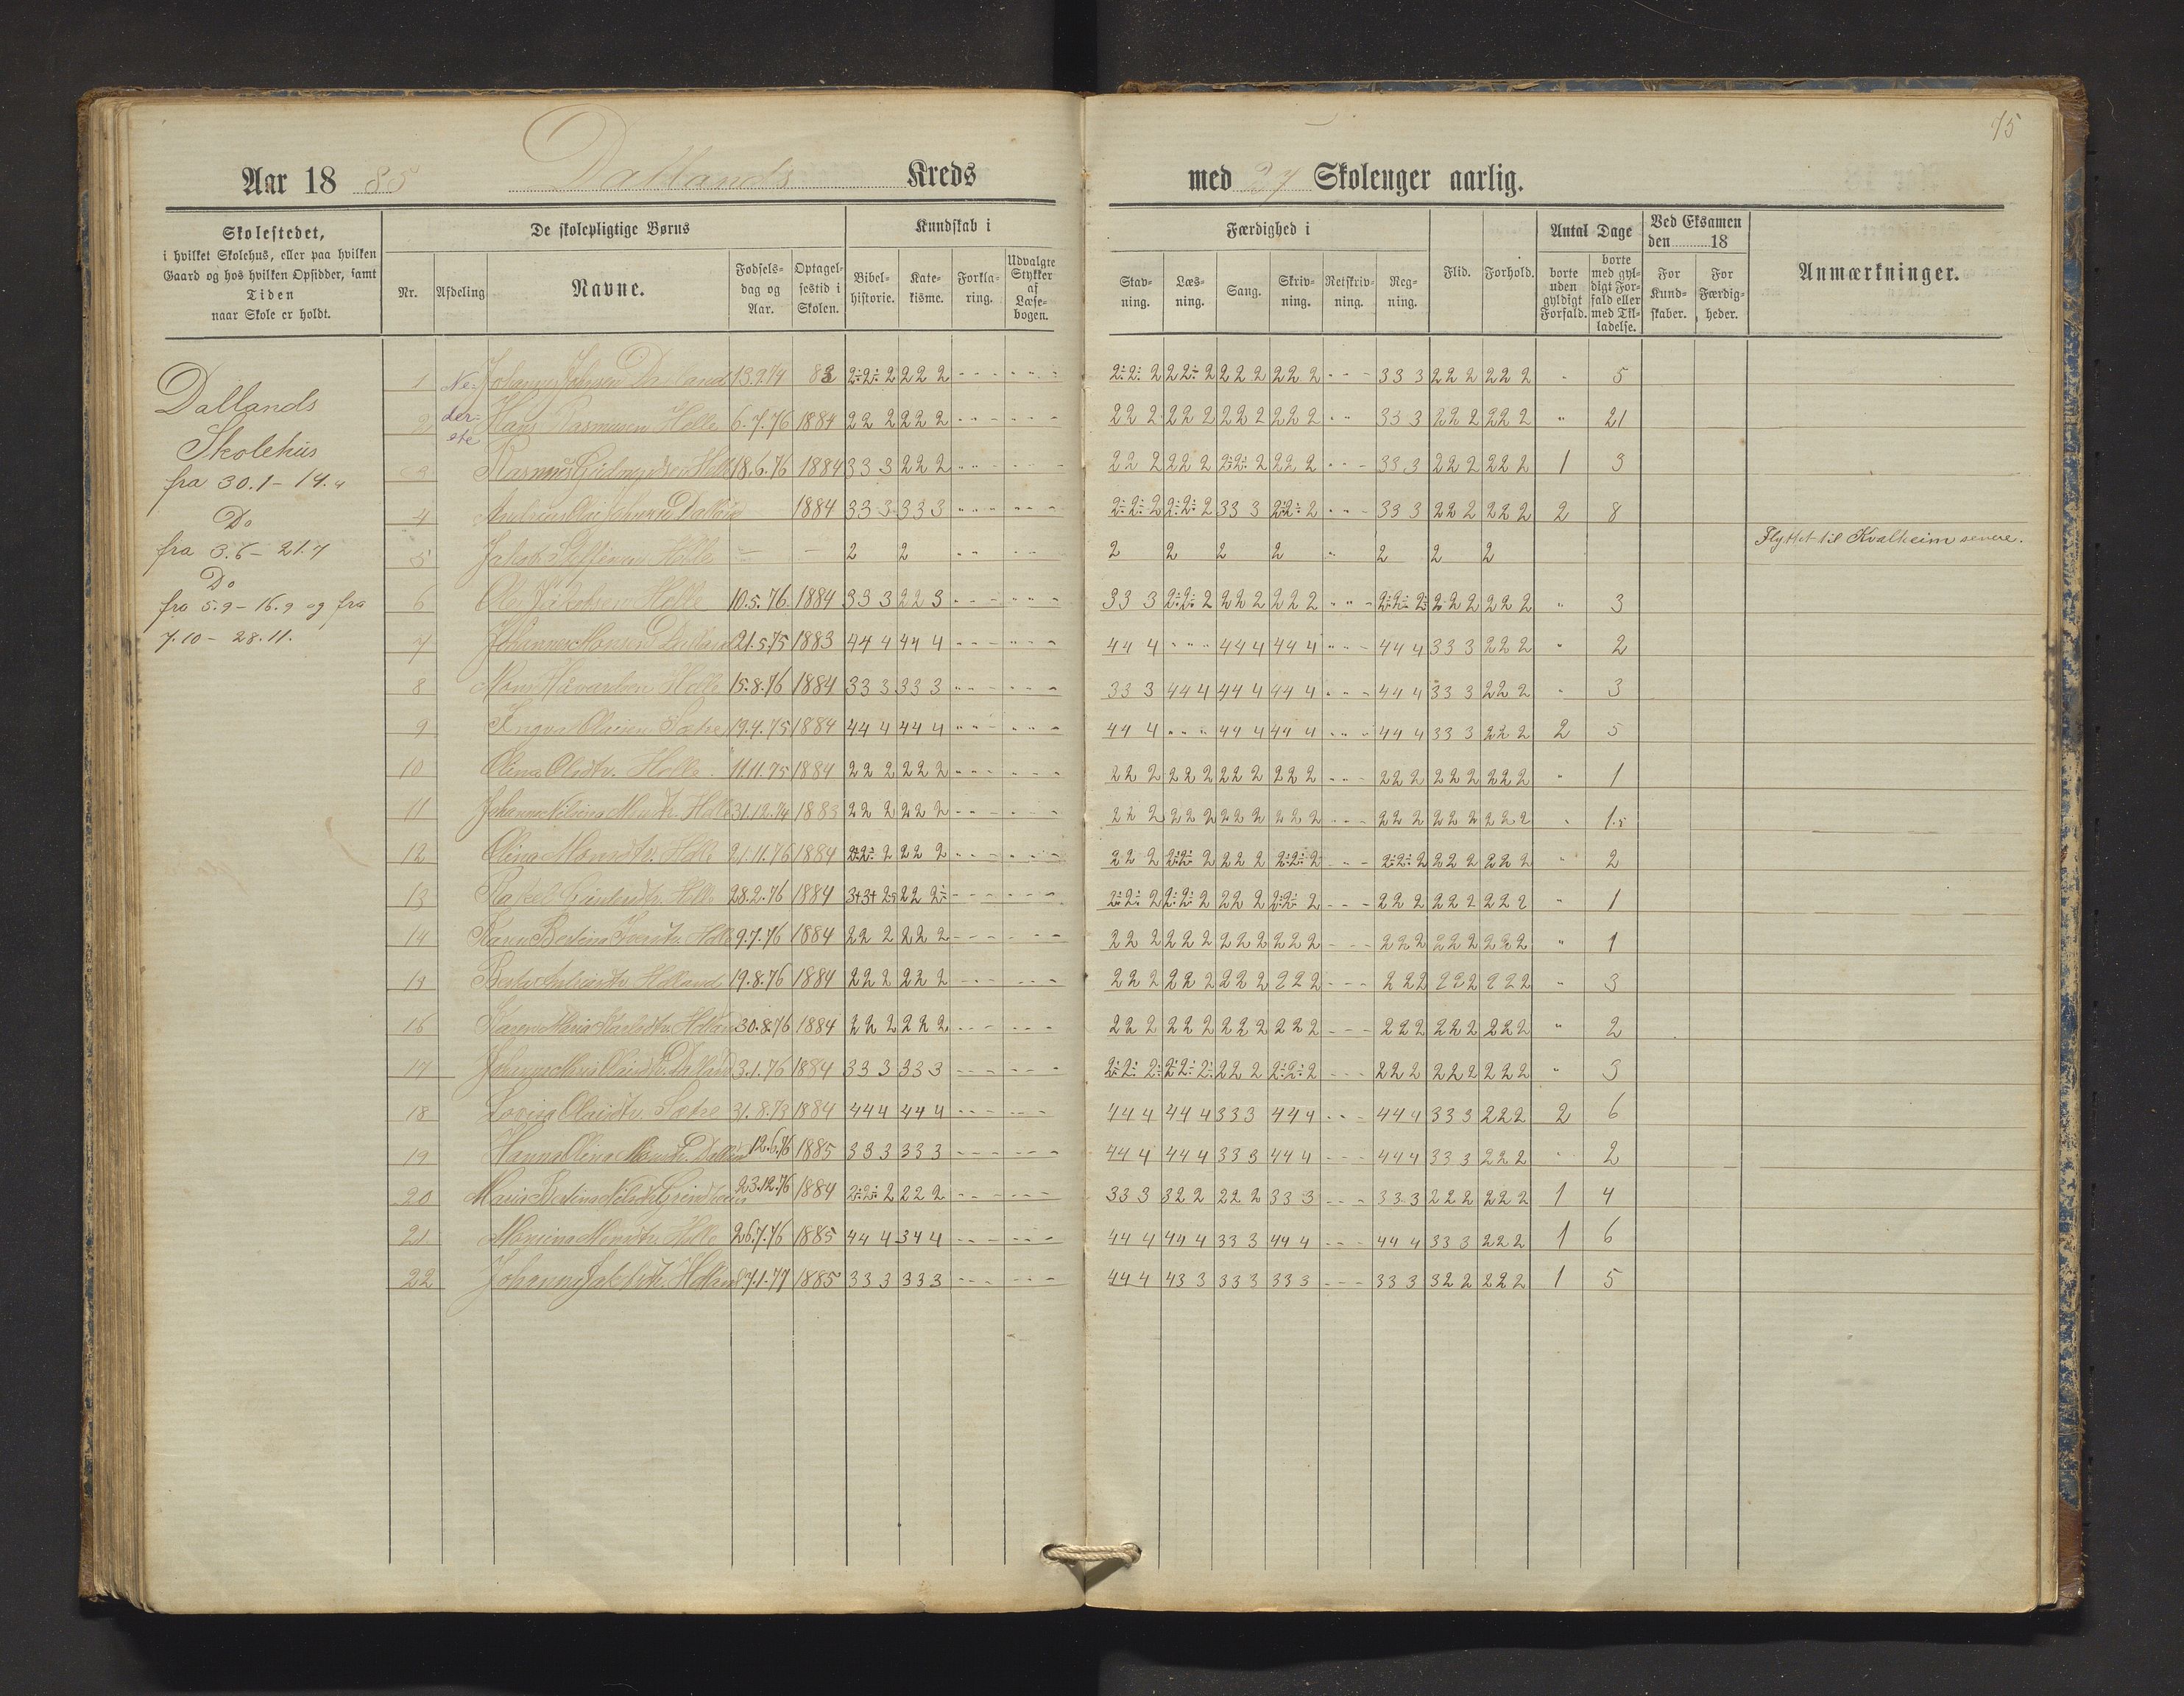 75
Aar 18 85 Dallands Kreds med 27 Skoleuger aarlig.
Skolestedet,
i hvilket Skolehus, eller paa hvilken
Gaard og hos hvilken Opsidder, samt
Tiden
naar Skole er holdt.
De skolepligtige Børns
Nr.
Afdeling
Navne.
Fødsels-
dag og
Aar.
Optagel-
sestid i
Skolen.
Kundskab i
Bibel-
historie.
Kate-
kisme.
Forkla-
ring.
Udvalgte
Stykker
af
Læse-
bogen.
Færdighed i
Stav-
ning.
Læs-
ning.
Sang.
Skriv-
ning.
Retskriv-
ning.
Reg-
ning.
Flid.
Forhold.
Antal Dage
borte
uden
gyldigt
Forfald.
borte
med gyl-
digt For-
fald eller
med Til-
ladelse.
Ved Eksamen
den 18
For
Kund-
skaber.
For
Færdig-
heder.
Anmærkninger.
Dallands
Skolehus
fra 30.1 – 14.4
Do
fra 3.6 – 21.7
Do
fra 5.9 – 16.9 og fra
7.10 – 28.11.
Ne-
der-
ste
1 Johannes Johnsen Dalland 13.9.74 83 2÷ 2÷ 2 2 2 2 - - - - - - 2÷ 2÷ 2 2 2÷ 2 2 2 2 2 2 2 - - - 3 3 3 2 2 2 2 2 2 " 5
2 Hans Rasmusen Helle 6.7.76 1884 2 2 2 2 2 2 - - - - - 2 2 2 2 2 2 2 2 2 2 2 2 " " 3 3 3 2 2 2 2 2 2 " 21
3 Rasmus Gudmundsen Helle 18.6.76 1884 3 3 3 2 2 2 - - - - - - 2 2 2 2 2 2 2÷ 2÷ 2 2 2 2 - - - 3 3 3 2 2 2 2 2 2 1 3
4 Dalland 1884 3 3 3 3 3 3 - - - - - - 2÷ 2÷ 2 2÷ 2÷ 2 3 3 3 2÷ 2÷ 2 - - - 3 3 3 2 2 2 2 2 2 2 8
5 Jakob Helle – – 2 2 " " - - 2 2 2 2 " 2 2 2 Flyttet til Kvalheim senere.
6 Ole Jakobsen Helle 10.5.76 1884 3 3 3 2 2 3 - - - - - - 3 3 3 2÷ 2÷ 2 2 2 2 2 2 2 " " - 2÷ 2÷ 2÷ 2 2 2 2 2 2 " 3
7 Johannes Monsen Dalland 21.5.75 1883 4 4 4 4 4 4 - - - - - - 4 4 4 " " " 4 4 4 4 4 4 - - - 4 4 4 3 3 3 2 2 2 " 2
8 Mons Håvardsen Helle 15.8.76 1884 3 3 3 3 3 3 - - - - - - 3 3 3 4 4 4 4 4 4 4 4 4 - - - 4 4 4 3 3 3 2 2 2 " 3
9 Olaisen Sætre 19.4.75 1884 4 4 4 4 4 4 - - - - - - 4 4 4 " " " 4 4 4 4 4 4 - - - 4 4 4 3 3 3 2 2 2 2 5
10 Olina Olsdtr. Helle 11.11.75 1884 2 2 2 2 2 2 - - - - - - 2 2 2 2 2 2 2 2 2 2 2 2 - - - 2 2 2 2 2 2 2 2 2 " 1
11 Johanna Nilsina Monsdtr. Helle 31.12.74 1883 2 2 2 2 2 2 - - - - - - 2 2 2 2 2 2 2 2 2 2 2 2 - - - 2 2 2 2 2 2 2 2 2 " 1.5
12 Olina Monsdtr. Helle 21.11.76 1884 2÷ 2÷ 2 2 2 2 - - - - - - 2 2 2 2÷ 2÷ 2 2 2 2 2÷ 2÷ 2 - - - 2÷ 2÷ 2 2 2 2 2 2 2 " 2
13 Rakel Helle 28.2.76 1884 3+ 3+ 2÷ 2 2 2÷ - - - - - - 2÷ 2÷ 2 2÷ 2÷ 2 2 2 2 2÷ 2÷ 2 - - - 2 2 2 2 2 2 2 2 2 " 1
14 Karen Bertina Iversdtr. Helle 9.7.76 1884 2 2 2 2 2 2 - - - - - - 2 2 2 2 2 2 2 2 2 2 2 2 - - - 2 2 2 2 2 2 2 2 2 " 1
14 Helland 19.8.76 1884 2 2 2 2 2 2 - - - - - - 2 2 2 2 2 2 2 2 2 2 2 2 - - - 2 2 2 2 2 2 2 2 2 " 3
16 Karen Maria Helland 30.8.76 1884 2 2 2 2 2 2 - - - - - - 2 2 2 2 2 2 2 2 2 2 2 2 - - - 2 2 2 2 2 2 2 2 2 " 2
17 Johanna Maria Olaisdtr. Dalland 3.1.76 1884 3 3 3 3 3 3 - - - - - - 2÷ 2÷ 2÷ 2÷ 2÷ 2÷ 2 2 2 2÷ 2÷ 2 - - - 2 2 2 2 2 2 2 2 2 " 3
18 Lovisa Olaisdtr. Sætre 31.8.73 1884 4 4 4 4 4 4 - - - - - - 4 4 4 4 4 4 3 3 3 4 4 4 - - - 4 4 4 3 3 3 2 2 2 2 6
19 Hanna Olina Monsdtr. Dalland 12.6.76 1885 3 3 3 3 3 3 - - - - - - 4 4 4 4 4 4 3 3 3 4 4 4 - - - 4 4 4 3 3 3 2 2 2 " 2
20 Maria Bertina Nilsdtr. 23.12.76 1884 2÷ 2÷ 2 2 2 2 - - - - - - 3 3 3 3 2 2 2 2 2 3 3 3 - - - 3 3 3 2 2 2 2 2 2 1 4
21 Monsina Monsdtr. Helle 26.7.76 1885 4 4 4 3 4 4 - - - - - - 4 4 4 4 4 4 3 3 3 4 4 4 - - - 4 4 4 3 3 3 2 2 2 1 6
22 Johanna Jakobdtr. Helland 27.1.77 1885 3 3 3 3 3 3 - - - - - - 4 4 4 4 3 3 3 3 3 3 3 3 - - - 3 3 3 3 2 2 2 2 2 1 5